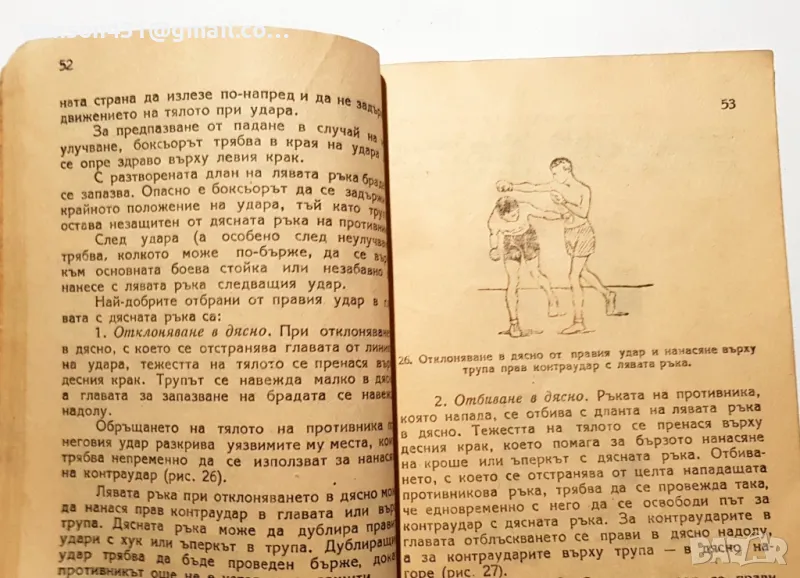 52
ната страна да излезе по-напред и да не задър
движението на тялото при удара.
За предпазване от падане в случай на
улучване, боксьорът трябва в края на удара
се опре здраво върху левия крак.
С разтворената длан на лявата ръка брад
се запазва. Опасно е боксьорът да се задърж
крайното положение на удара, тъй като труп
остава незащитен от дясната ръка на противни
След удара (а особено след неулучва
трябва, колкото може по-бърже, да се въ
към основната боева стойка или незабавно
нанесе с лявата ръка следващия удар.
Най-добрите отбрани от правия удар в г
вата с дясната ръка са:
1. Отклоняване в дясно. При отклоняване
в дясно, с което се отстранява главата от лини
на удара, тежестта на тялото се пренася вър
десния крак. Трупът се навежда малко в дяс
а главата за запазване на брадата се навеж
надолу.
Обръщането на тялото на противника п
неговия удар разкрива уязвимите му места, ко
трябва непременно да се използват за нанася
на контраудар (рис. 26).
Лявата ръка при отклоняването в дясно мо
да нанася прав контраудар в главата или вър
трупа. Дясната ръка може да дублира прави
удари с хук или ъперкът в трупа. Дублиращи
удар трябва да бъде проведен бърже, дока
противникът още не
53
26. Отклоняване в дясно от правия удар и нанасяне върху
трупа прав контраудар с лявата ръка.
2. Отбиване в дясно. Ръката на противника,
която напада, се отбива с дланта на лявата ръка
в дясно. Тежестта на тялото се пренася върху
десния крак, което помага за бързото нанасяне
на кроше или ъперкът с дясната ръка. Отбива-
нето, с което се отстранява от целта нападащата
противникова ръка, трябва да се провежда така,
че едновременно с него да се освободи път за
контраудар с дясната ръка. За контраударите в
главата отблъскването се прави в дясно надолу,
а за контраударите върху трупа — в дясно на-
горе (рис. 27).
BAZAR